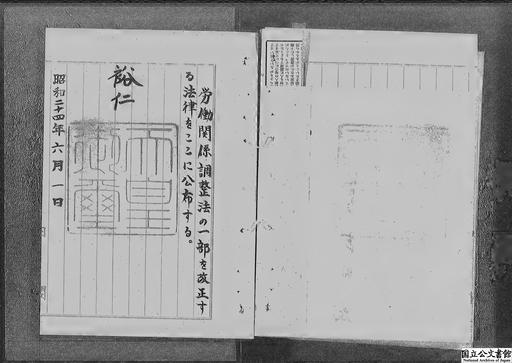 労働関係調整法の一部を改正す
る法律をここに公布する。
裕仁
天皇
御璽
昭和二十四年六月一日
国立公文書館
National Archives of Japan